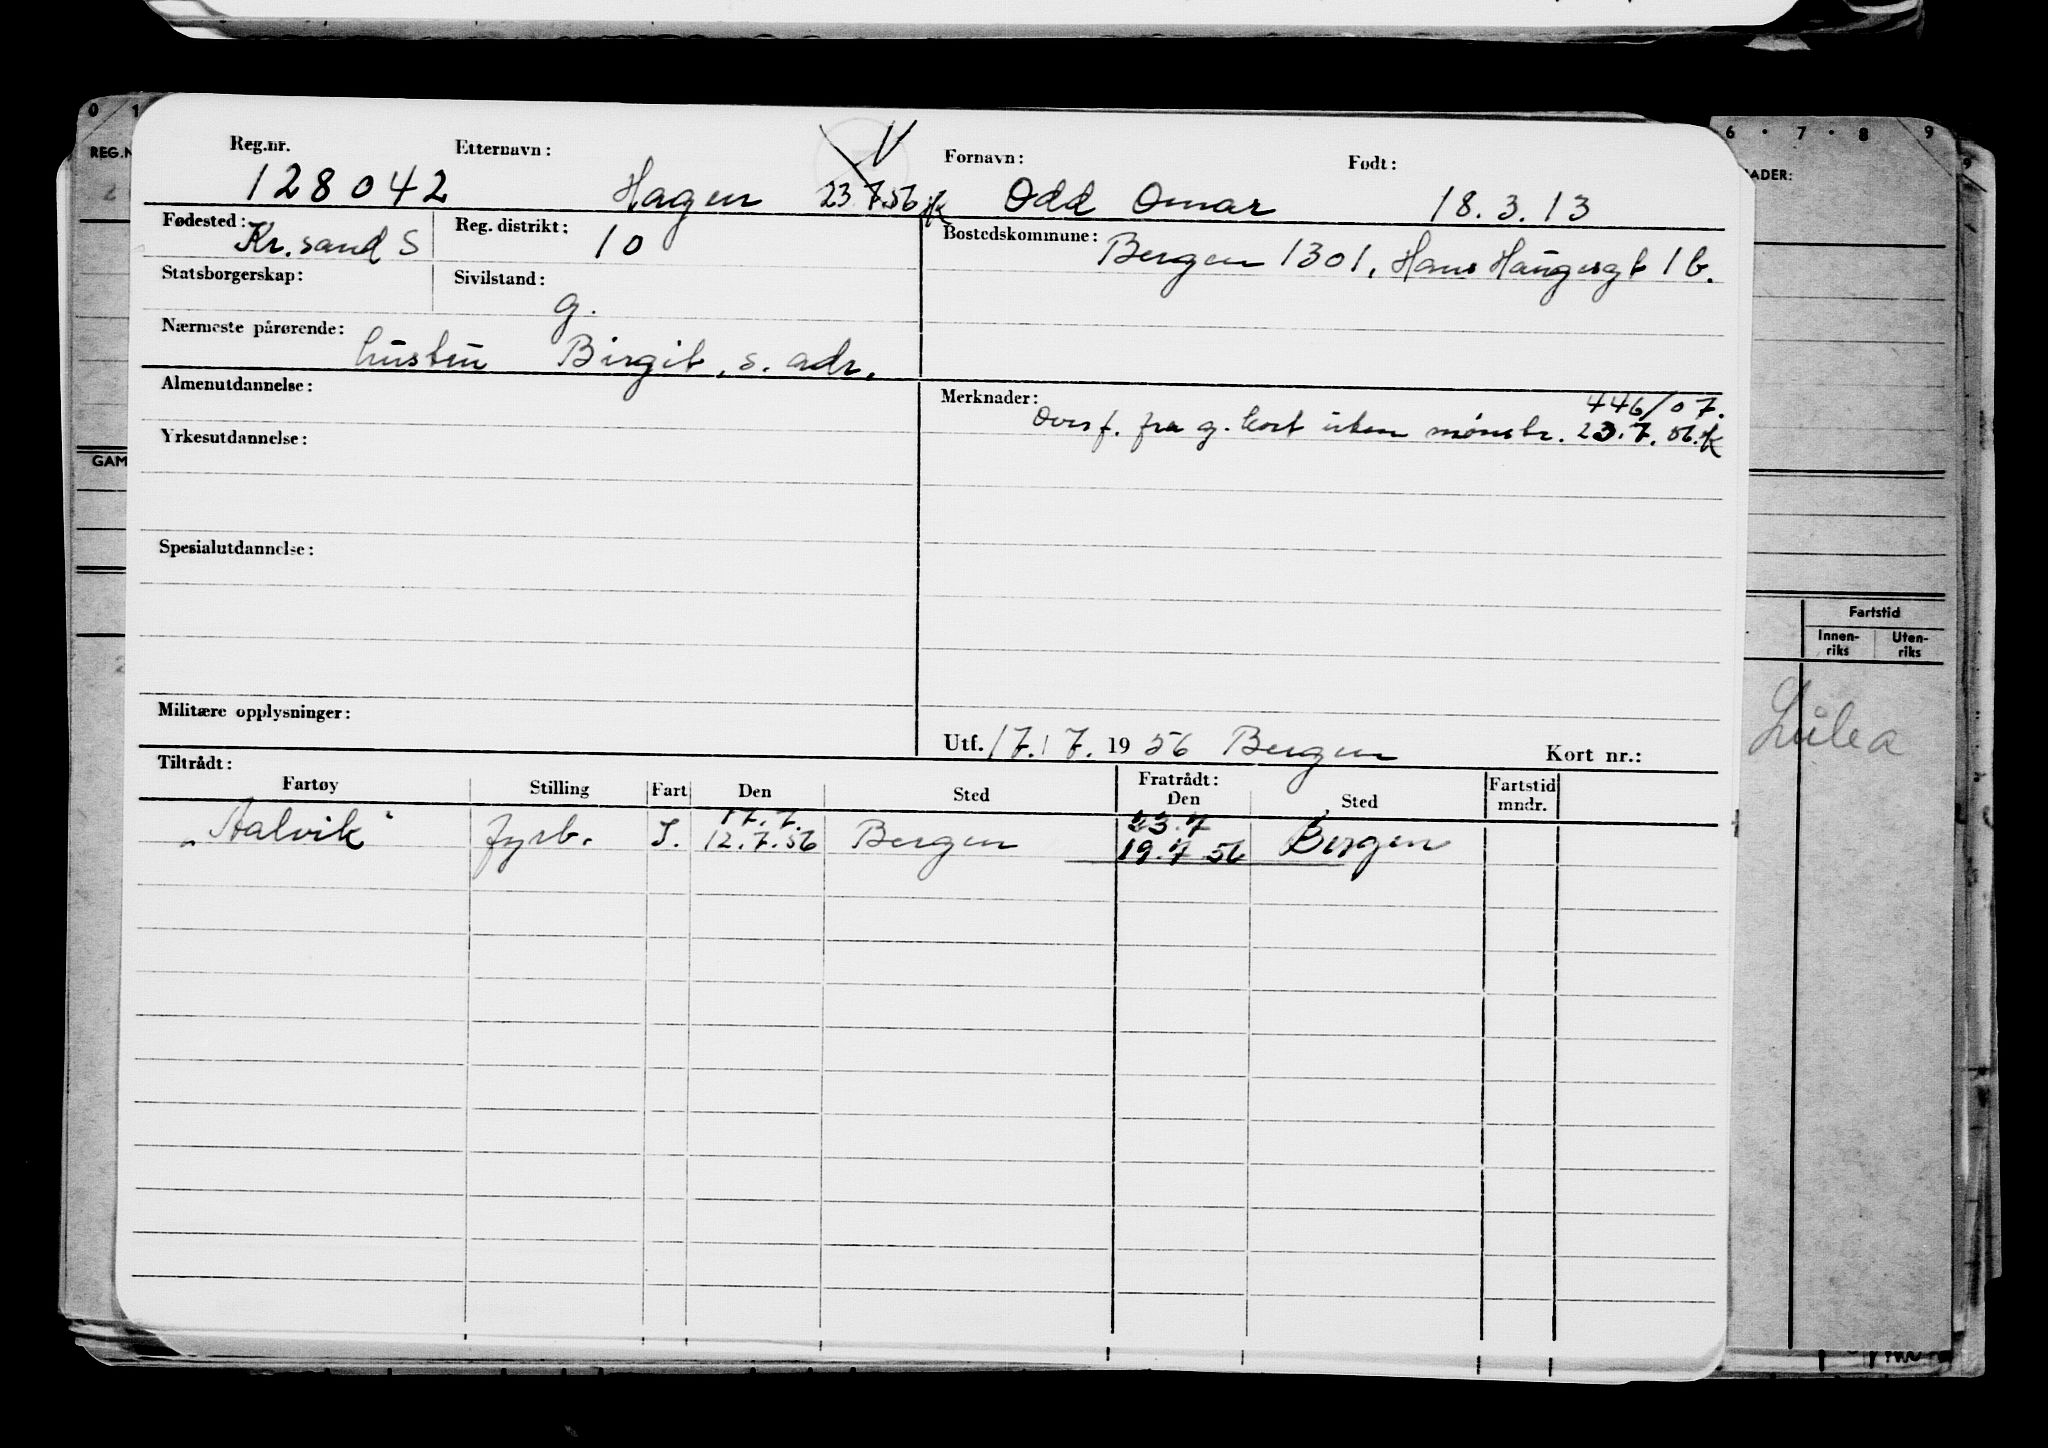 0 1 6 · 7 · 8 9
REG.N ADER:
Reg.nr. Etternavn: V Fornavn: Født:
128042 Hagen 23.7.56 Odd Omar 18.3.13
Fødested: Kr.sand S Reg. distrikt: 10 Bostedskommune: Bergen 1301, Hans Haugesgt 1b.
Statsborgerskap: Sivilstand: g.
Nærmeste pårørende: hustru Birgit, s. adr.
Almenutdannelse: Merknader: 446/07.
Overf. fra g. kort uten mønstr. 23.7.56.
Yrkesutdannelse:
GAM
Spesialutdannelse:
Fartstid
Innen-riks Uten-riks
Militære opplysninger:
Utf. 17.7. 1956 Bergen Kort nr.:
Luleå
Tiltrådt: Fratrådt:
Fartøy Stilling Fart Den Sted Den Sted Fartstid mndr.
17.7. 23.7
"Aalvik" fyrb. I. 12.7.56 Bergen 19.7 56 Bergen